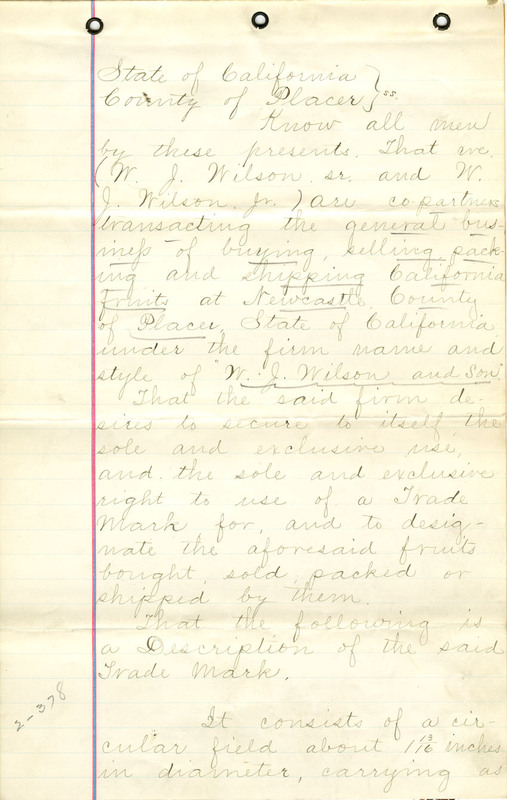 State of California }
County of Placer } ss.
Know all men
by these presents. That we.
(W. J. Wilson sr. and W.
J. Wilson Jr.) are co.partners
transacting the general bus-
iness of buying, selling, pack-
ing and shipping California
fruits at Newcastle, County
of Placer, State of California
under the firm name and
style of "W. J. Wilson and Son".
That the said firm de-
sires to secure to itself the
sole and exclusive use,
and the sole and exclusive
right to use of a Trade
Mark for, and to desig-
nate the aforesaid fruits
bought, sold, packed or
shipped by them.
That the following is
a Description of the said
Trade Mark.
2-378
It consists of a cir-
cular field about 1 13/16 inches
in diameter, carrying as